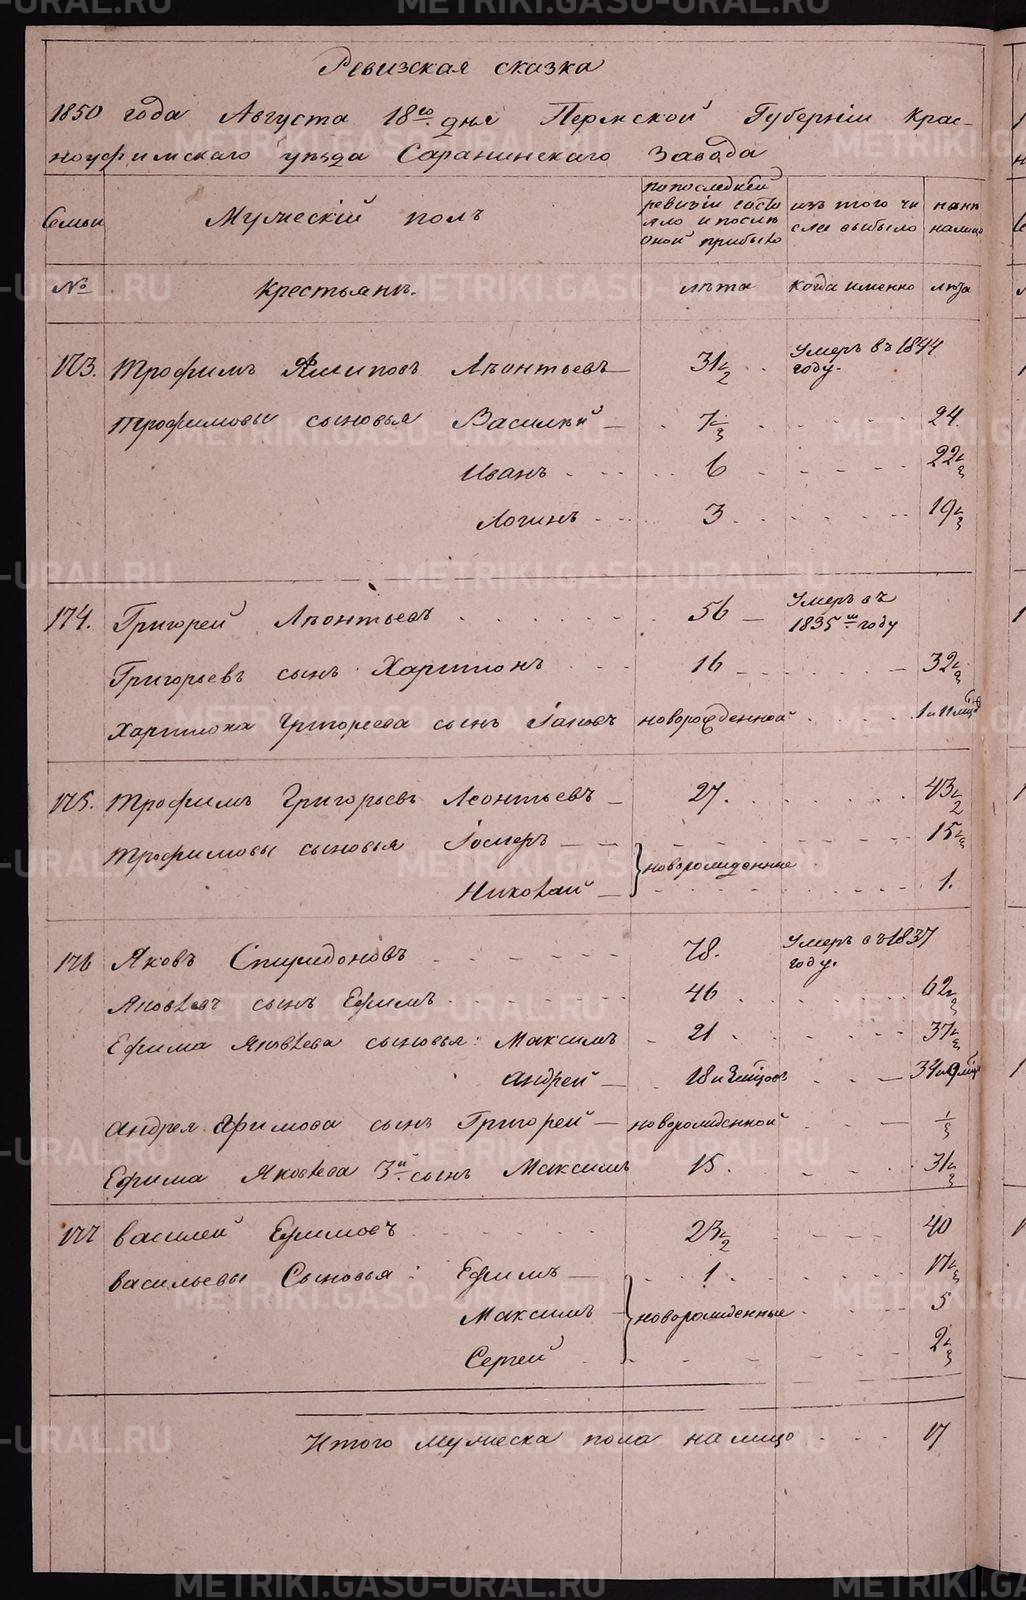 Ревизская сказка
1850 года Августа 18го дня Пермской Губерніи Крас-
ноуфимскаго уѣзда Саранинскаго Завода
Семьи
Мужескій полъ
по последней ревизіи состояло и послѣ оной прибыло
изъ того числа выбыло
нынѣ налицо
№
Крестьянъ.
лѣта
когда именно
лѣта
173. Трофимъ Леонтьевъ 31½ Умеръ въ 1844 году.
Трофимовы сыновья Василей 7½ 24.
Иванъ 6 22½
Логинъ 3 19½
174. Григорей Леонтьевъ 56 Умеръ въ 1835м году
Григорьевъ сынъ Харитонъ 16 32½
Харитона Григорьева сынъ Іаковъ новорожденной
175. Трофимъ Григорьевъ Леонтьевъ 27. 43½
Трофимовы сыновья 15½
Николай новорожденные 1.
176 Яковъ Спиридоновъ 78. Умеръ въ 1837 году.
Яковлевъ сынъ Ефимъ 46 62½
Ефима Яковлева сыновья: Максимъ 21 37½
Андрей
Андрея Ефимова сынъ Григорей новорожденной ½
Ефима Яковлева 3й сынъ Максимъ 15. 31½
177 Василей Ефимовъ 23½ 40
Васильевы Сыновья: Ефимъ 1. 17½
Максимъ новорожденные 5
Сергей 2½
Итого мужеска пола на лицо 17
METRIKI.GASO-URAL.RU